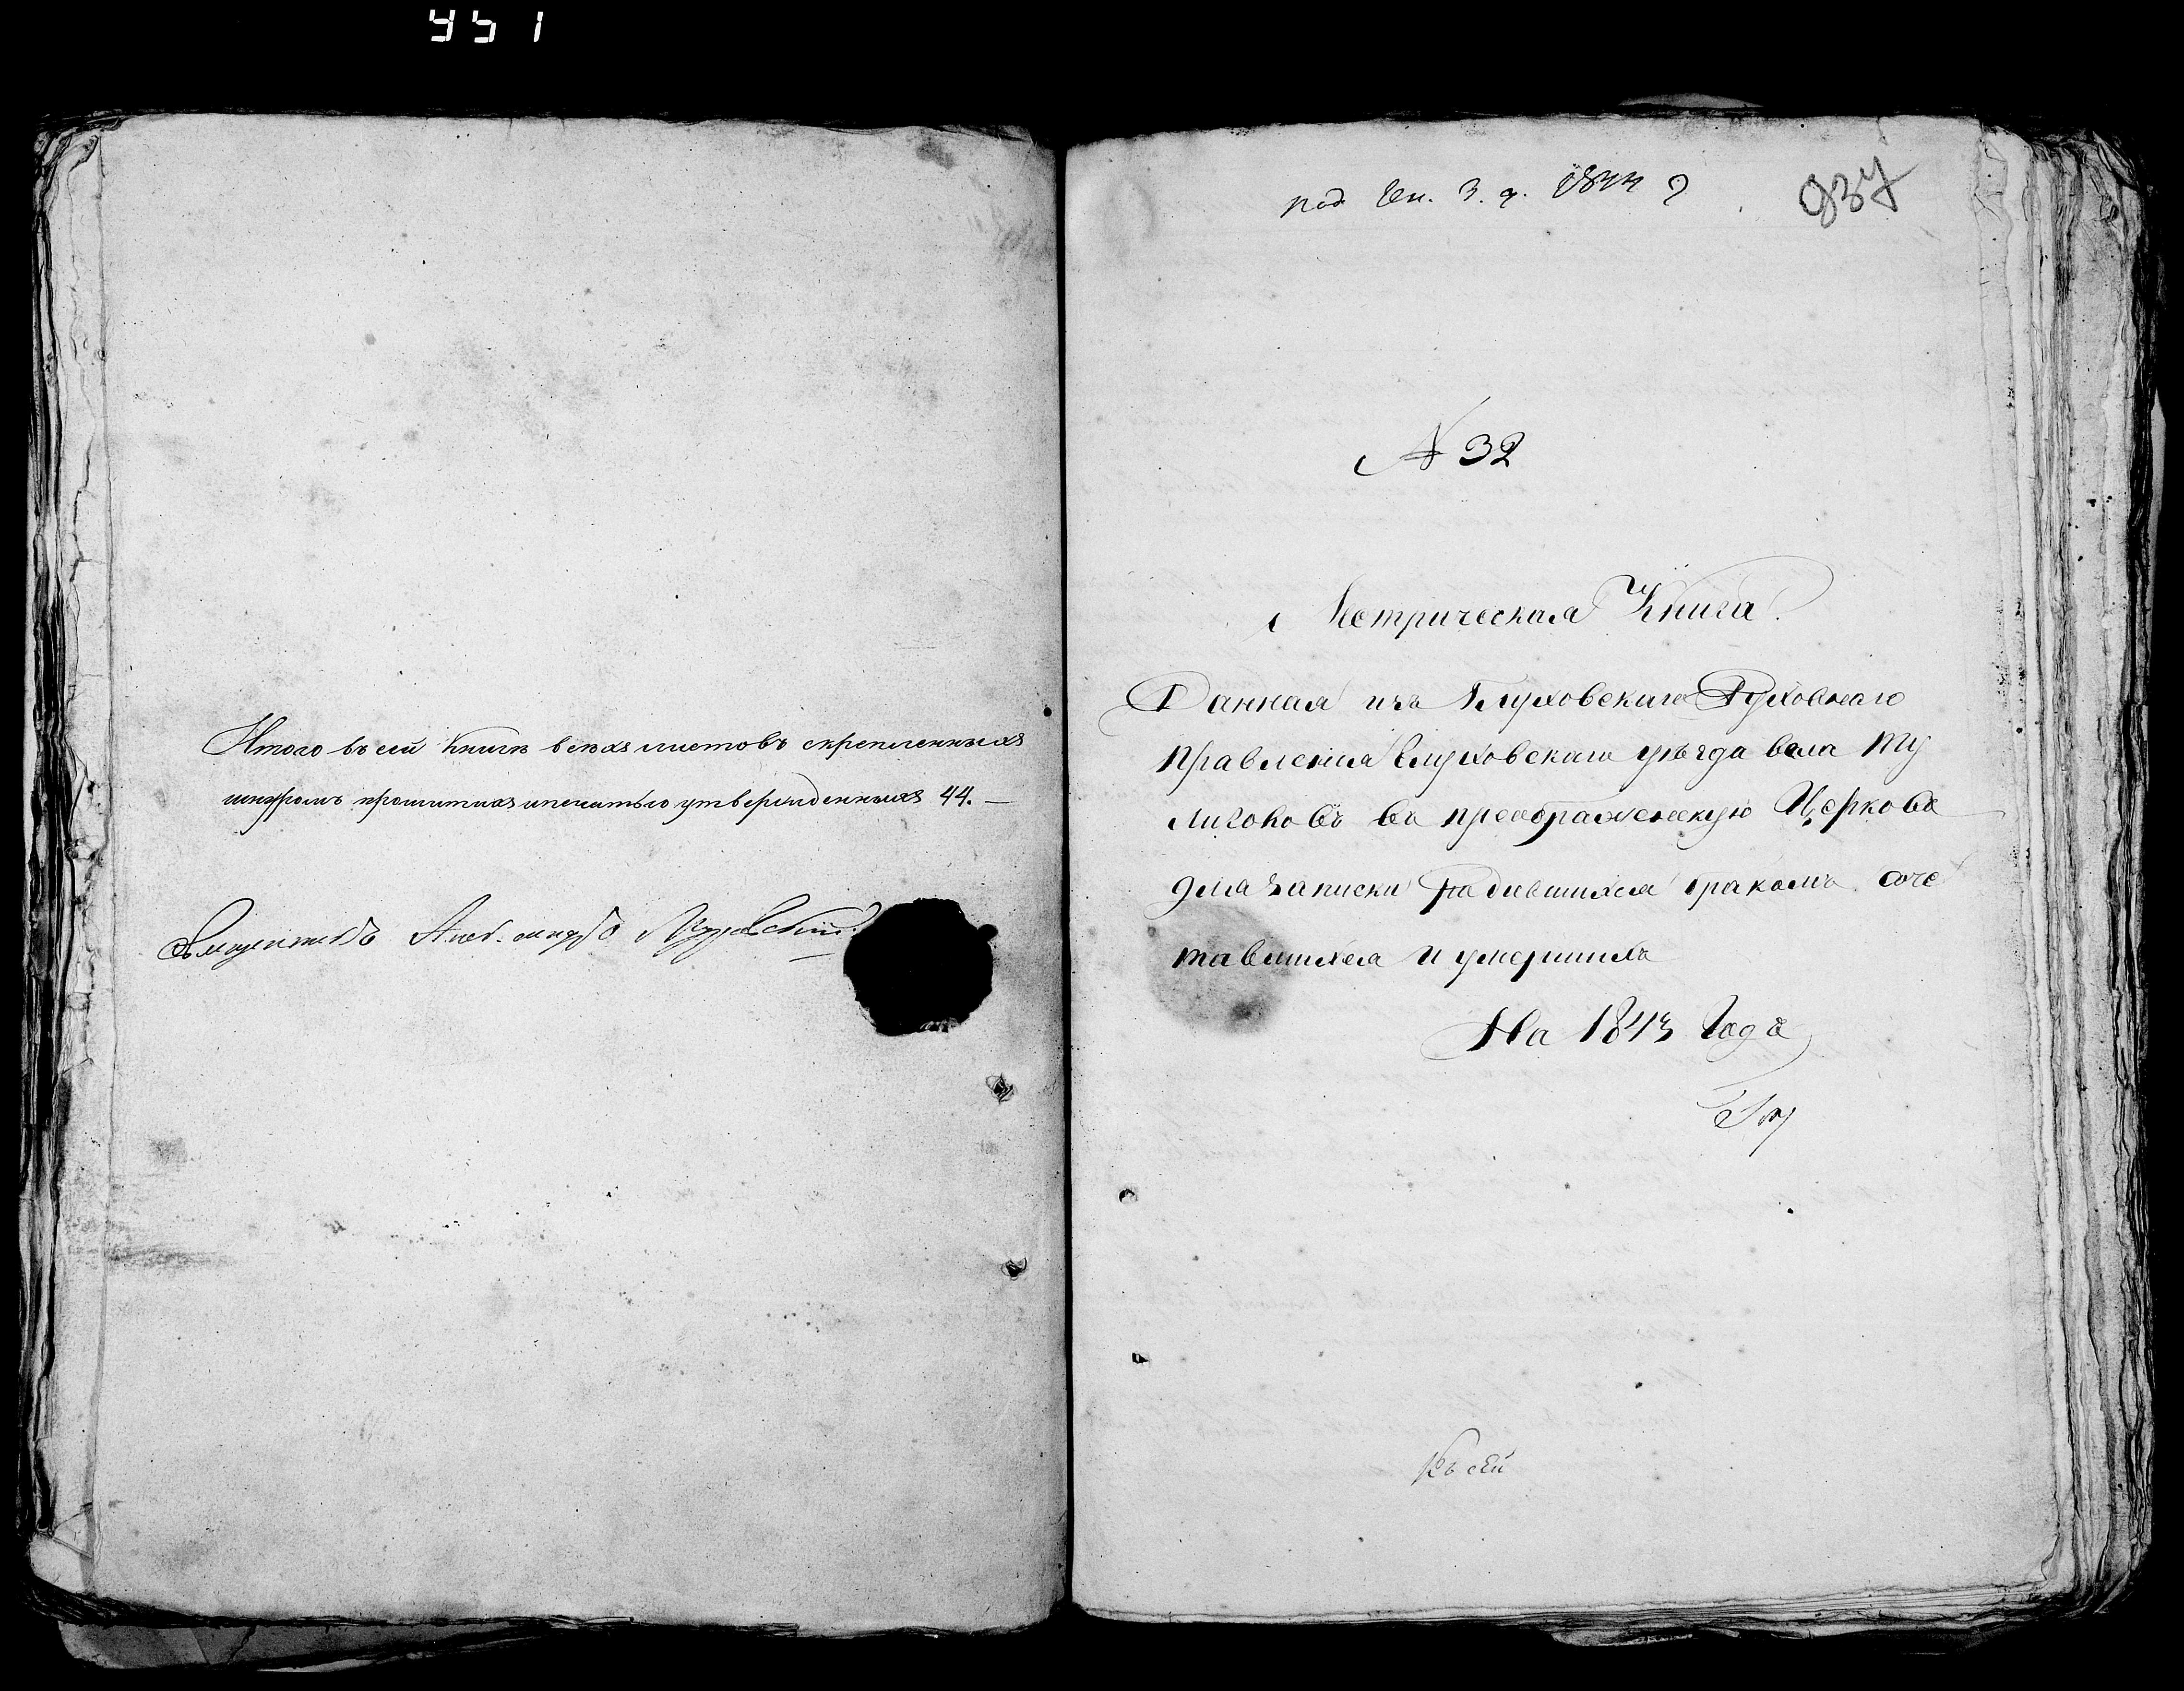 451
Итого въ сей книгѣ всѣхъ листовъ скрепленныхъ
шнуромъ прошитыхъ и печатью утвержденныхъ 44.—
под Ген. 3. д. 1844 г
937
N 32
Метрическая Книга.
Данная изъ Глуховскаго Духовнаго
Правленія Глуховскаго уѣзда вела Ту
лиголовъ въ преображенскую Церковь
для записки Радившихся бракомъ соче
тавшихся и умершихъ
На 1843 Годъ
Къ сей